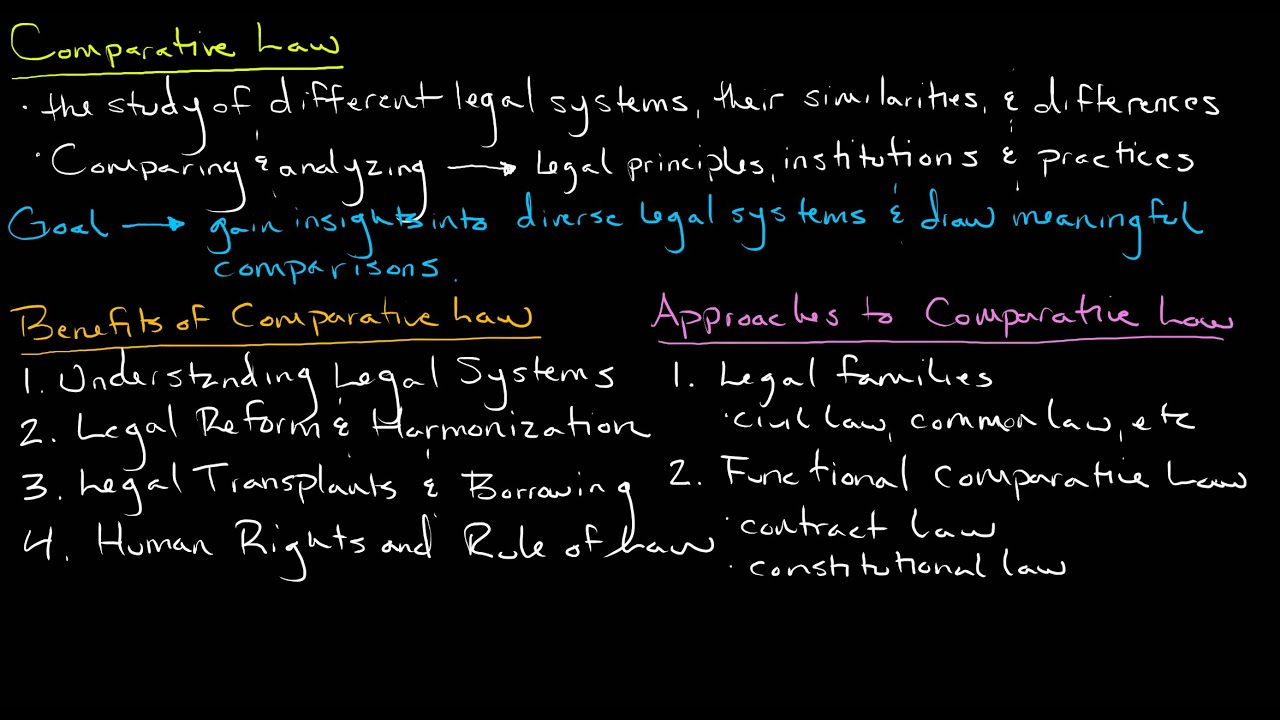 Comparative Law
· the study of different legal systems, their similarities, & differences
· Comparing & analyzing → Legal principles, institutions & practices
Goal → gain insights into diverse legal systems & draw meaningful
comparisons.
Benefits of Comparative Law
1. Understanding Legal Systems
2. Legal Reform & Harmonization
3. Legal Transplants & Borrowing
4. Human Rights and Rule of Law
Approaches to Comparative Law
1. Legal families
· civil law, common law, etc
2. Functional Comparative Law
· contract law
· constitutional law